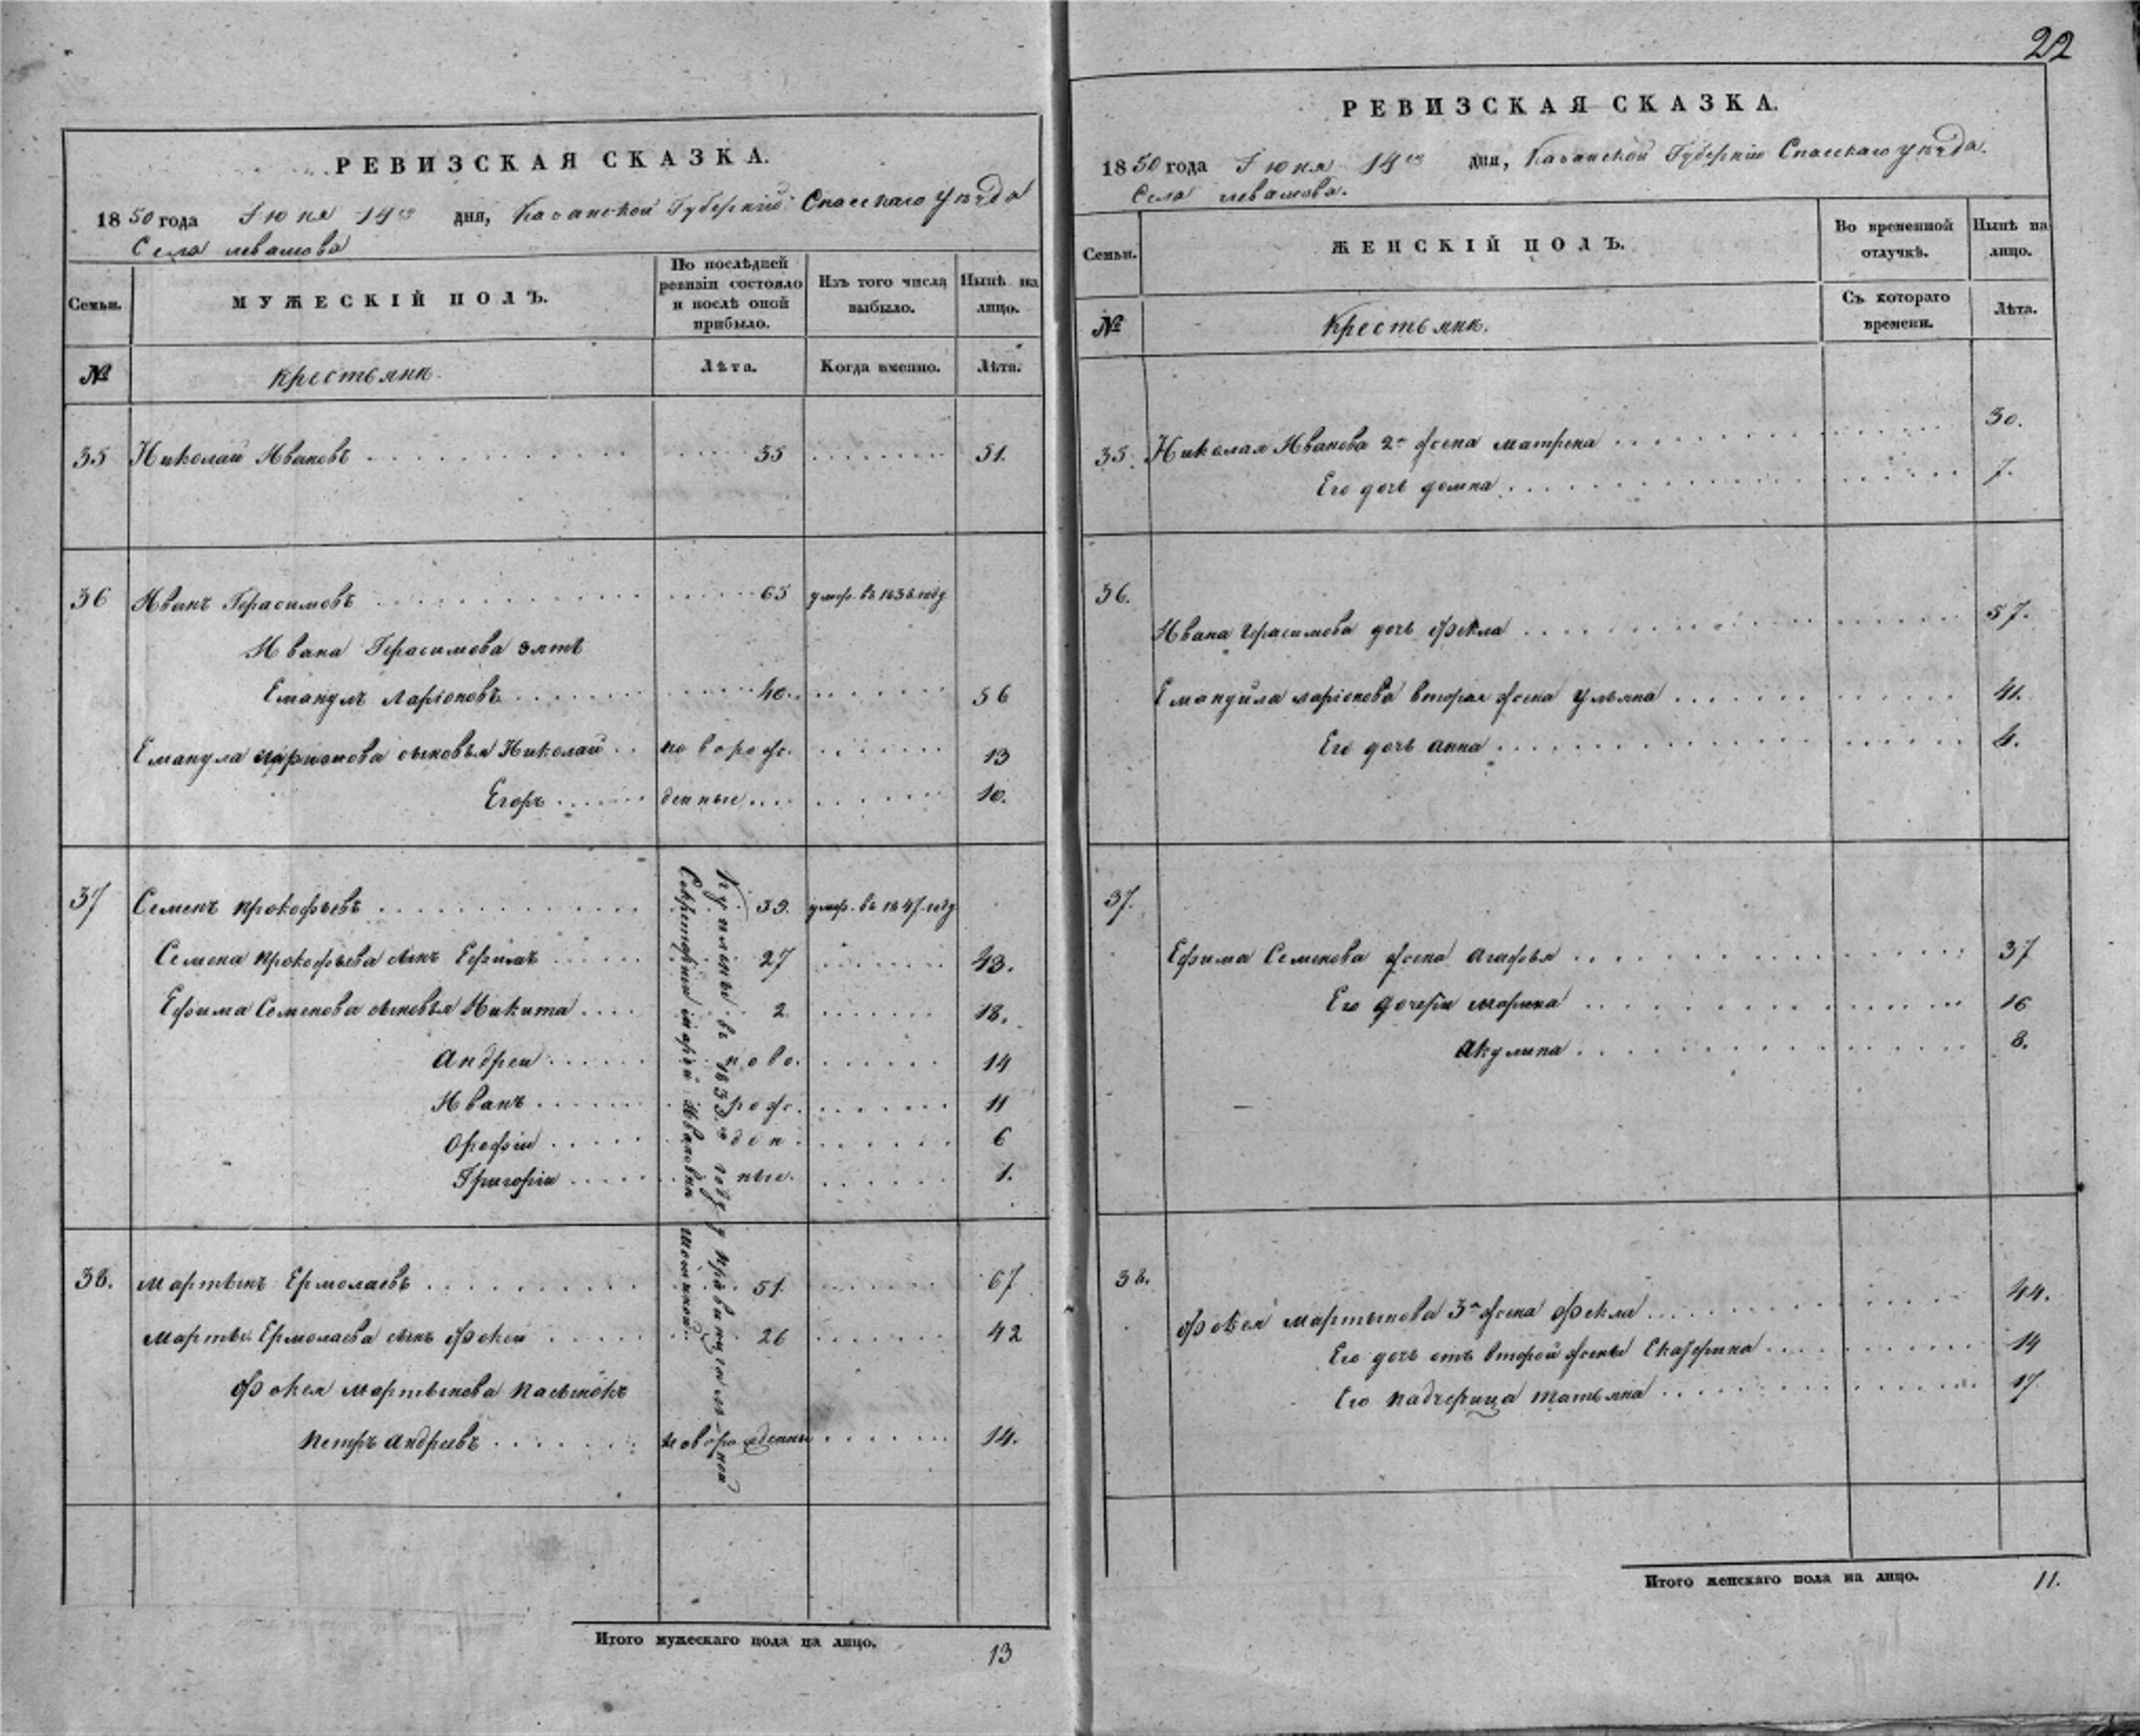 РЕВИЗСКАЯ СКАЗКА.
1850 года Іюня 14го дня, Казанской Губерніи Спасскаго уѣзда
Села левашова
Семьи.
МУЖЕСКІЙ ПОЛЪ.
По послѣдней ревизіи состояло и послѣ оной прибыло.
Изъ того числа выбыло.
Нынѣ на лицо.
№
крестьянѣ.
Лѣта.
Когда именно.
Лѣта.
35 Николай Ивановъ 35 51.
36 Иванъ Герасимовъ 65 умер. въ 1838 году
Ивана Герасимова зять
Емануилъ Ларіоновъ 40. 56
Емануила Ларионова сыновья Николай ново рож. 13
Егоръ денные 10.
37 Семенъ Прокофьевъ 39. умер. въ 1847 году
Семена Прокофьева сынъ Ефимъ 27 43.
Ефима Семенова сыновья Никита 2. 18.
Андрей ново. 14
Иванъ рож. 11
Орефій ден 6
Григорій ные. 1.
Куплены въ 1839го году у
Ивановны
38. Мартынъ Ермолаевъ 51. 67
Марты. Ермолаева сынъ Фокей 26 42
Фокея Мартынова пасынокъ
Петръ Андреевъ новорожденны 14.
Итого мужескаго пола на лицо. 13
22
РЕВИЗСКАЯ СКАЗКА.
1850 года Іюня 14го дня, Казанской Губерніи Спасскаго уѣзда.
Села левашова.
Семьи.
ЖЕНСКІЙ ПОЛЪ.
Во временной отлучкѣ.
Нынѣ на лицо.
№
Крестьянѣ.
Съ котораго времени.
Лѣта.
35. Николая Иванова 2я жена Матрена 30.
Его дочь домна 7.
36.
Ивана Герасимова дочь Фекла 57.
Емануйла Ларіонова вторая жена Ульяна 41.
Его дочь Анна 4.
37.
Ефима Семенова жена Агафья 37
Его дочери Марина 16
Акулина 8.
38.
Фокея Мартынова 3я жена Фекла 44.
Его дочь отъ второй жены Екатерина 14
Его падчерица Татьяна 17
Итого женскаго пола на лицо. 11.